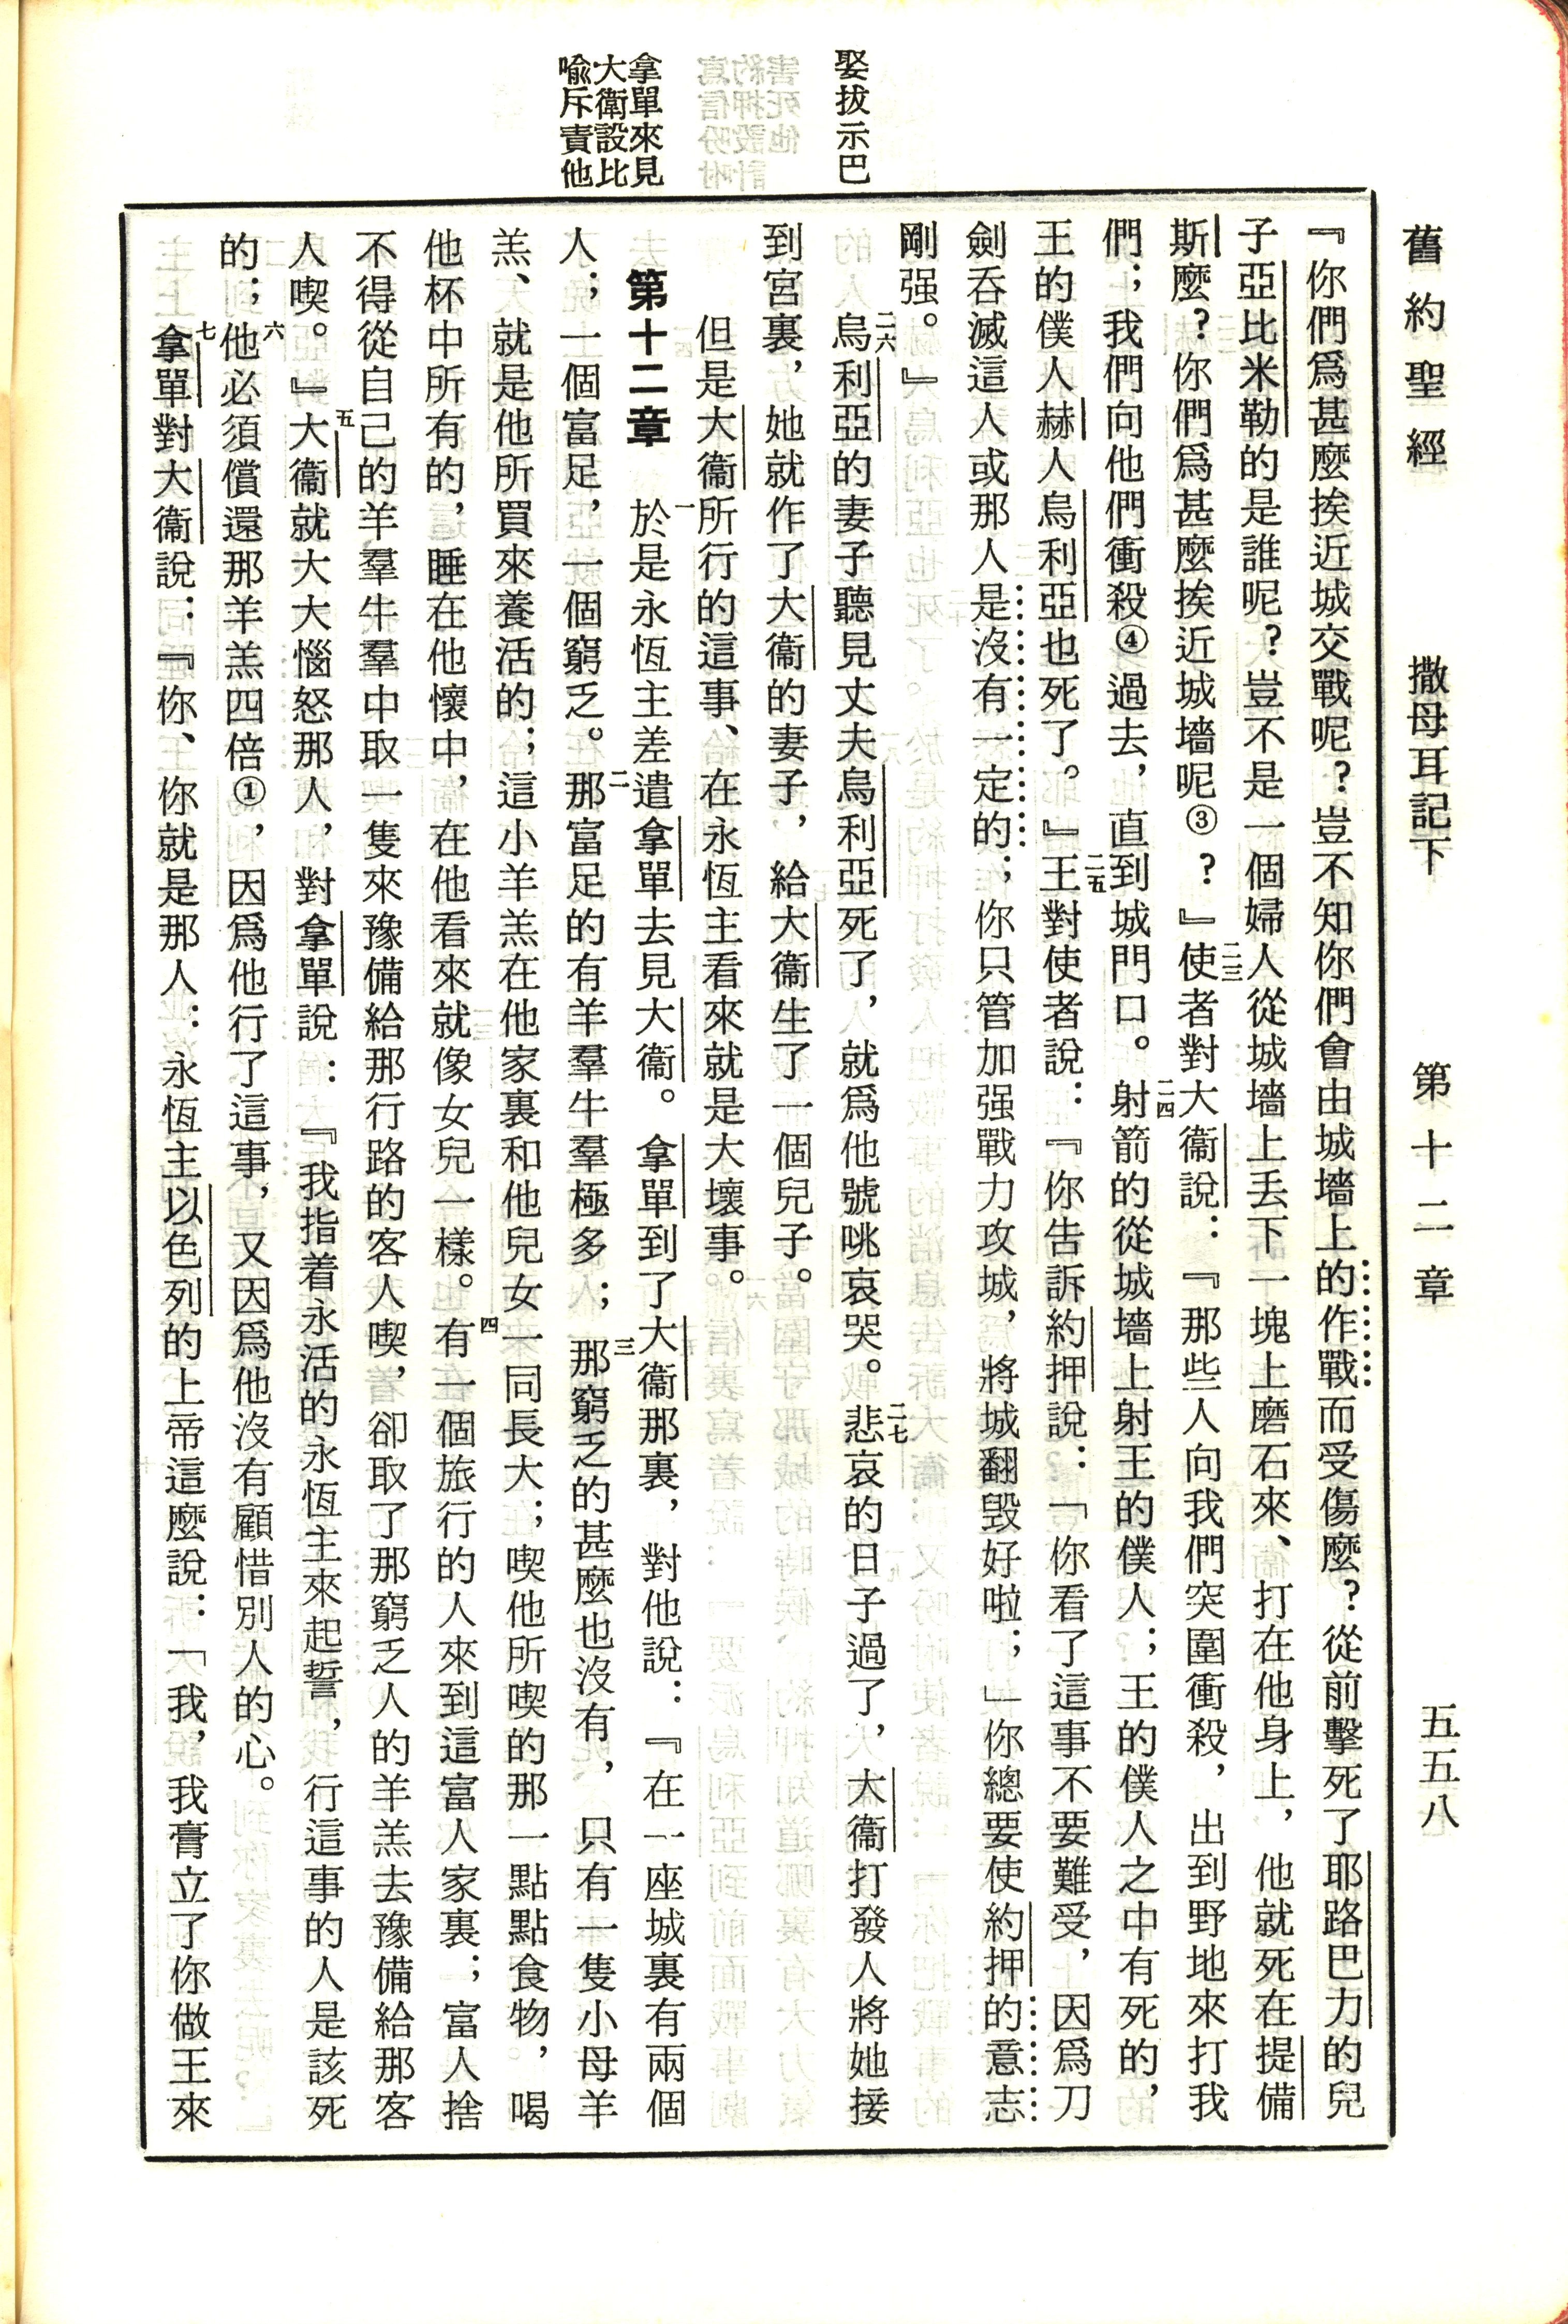 舊約聖經　撒母耳記下　第十二章　五五八
娶拔示巴
拿單來見
大衞設比
喻斥責他
『你們爲甚麼挨近城交戰呢？豈不知你們會由城墻上的作戰而受傷麼？從前擊死了耶路巴力的兒
子亞比米勒的是誰呢？豈不是一個婦人從城墻上丢下一塊上磨石來、打在他身上，他就死在提備
斯麼？你們爲甚麼挨近城墻呢③？』二三使者對大衞說：『那些人向我們突圍衝殺，出到野地來打我
們；我們向他們衝殺④過去，直到城門口。二四射箭的從城墻上射王的僕人；王的僕人之中有死的，
王的僕人赫人烏利亞也死了。』二五王對使者說：『你告訴約押說：「你看了這事不要難受，因爲刀
劍吞滅這人或那人是沒有一定的；你只管加强戰力攻城，將城翻毁好啦；」你總要使約押的意志
剛强。』
二六烏利亞的妻子聽見丈夫烏利亞死了，就爲他號咷哀哭。二七悲哀的日子過了，大衞打發人將她接
到宮裏，她就作了大衞的妻子，給大衞生了一個兒子。
但是大衞所行的這事、在永恆主看來就是大壞事。
第十二章　一於是永恆主差遣拿單去見大衞。拿單到了大衞那裏，對他說：『在一座城裏有兩個
人；一個富足，一個窮乏。二那富足的有羊羣牛羣極多；三那窮乏的甚麼也沒有，只有一隻小母羊
羔、就是他所買來養活的；這小羊羔在他家裏和他兒女一同長大；喫他所喫的那一點點食物，喝
他杯中所有的，睡在他懷中，在他看來就像女兒一樣。四有一個旅行的人來到這富人家裏；富人捨
不得從自己的羊羣牛羣中取一隻來豫備給那行路的客人喫，卻取了那窮乏人的羊羔去豫備給那客
人喫。』五大衞就大大惱怒那人，對拿單說：『我指着永活的永恆主來起誓，行這事的人是該死
的；六他必須償還那羊羔四倍①，因爲他行了這事，又因爲他沒有顧惜別人的心。
七拿單對大衞說：『你、你就是那人：永恆主以色列的上帝這麼說：「我，我膏立了你做王來